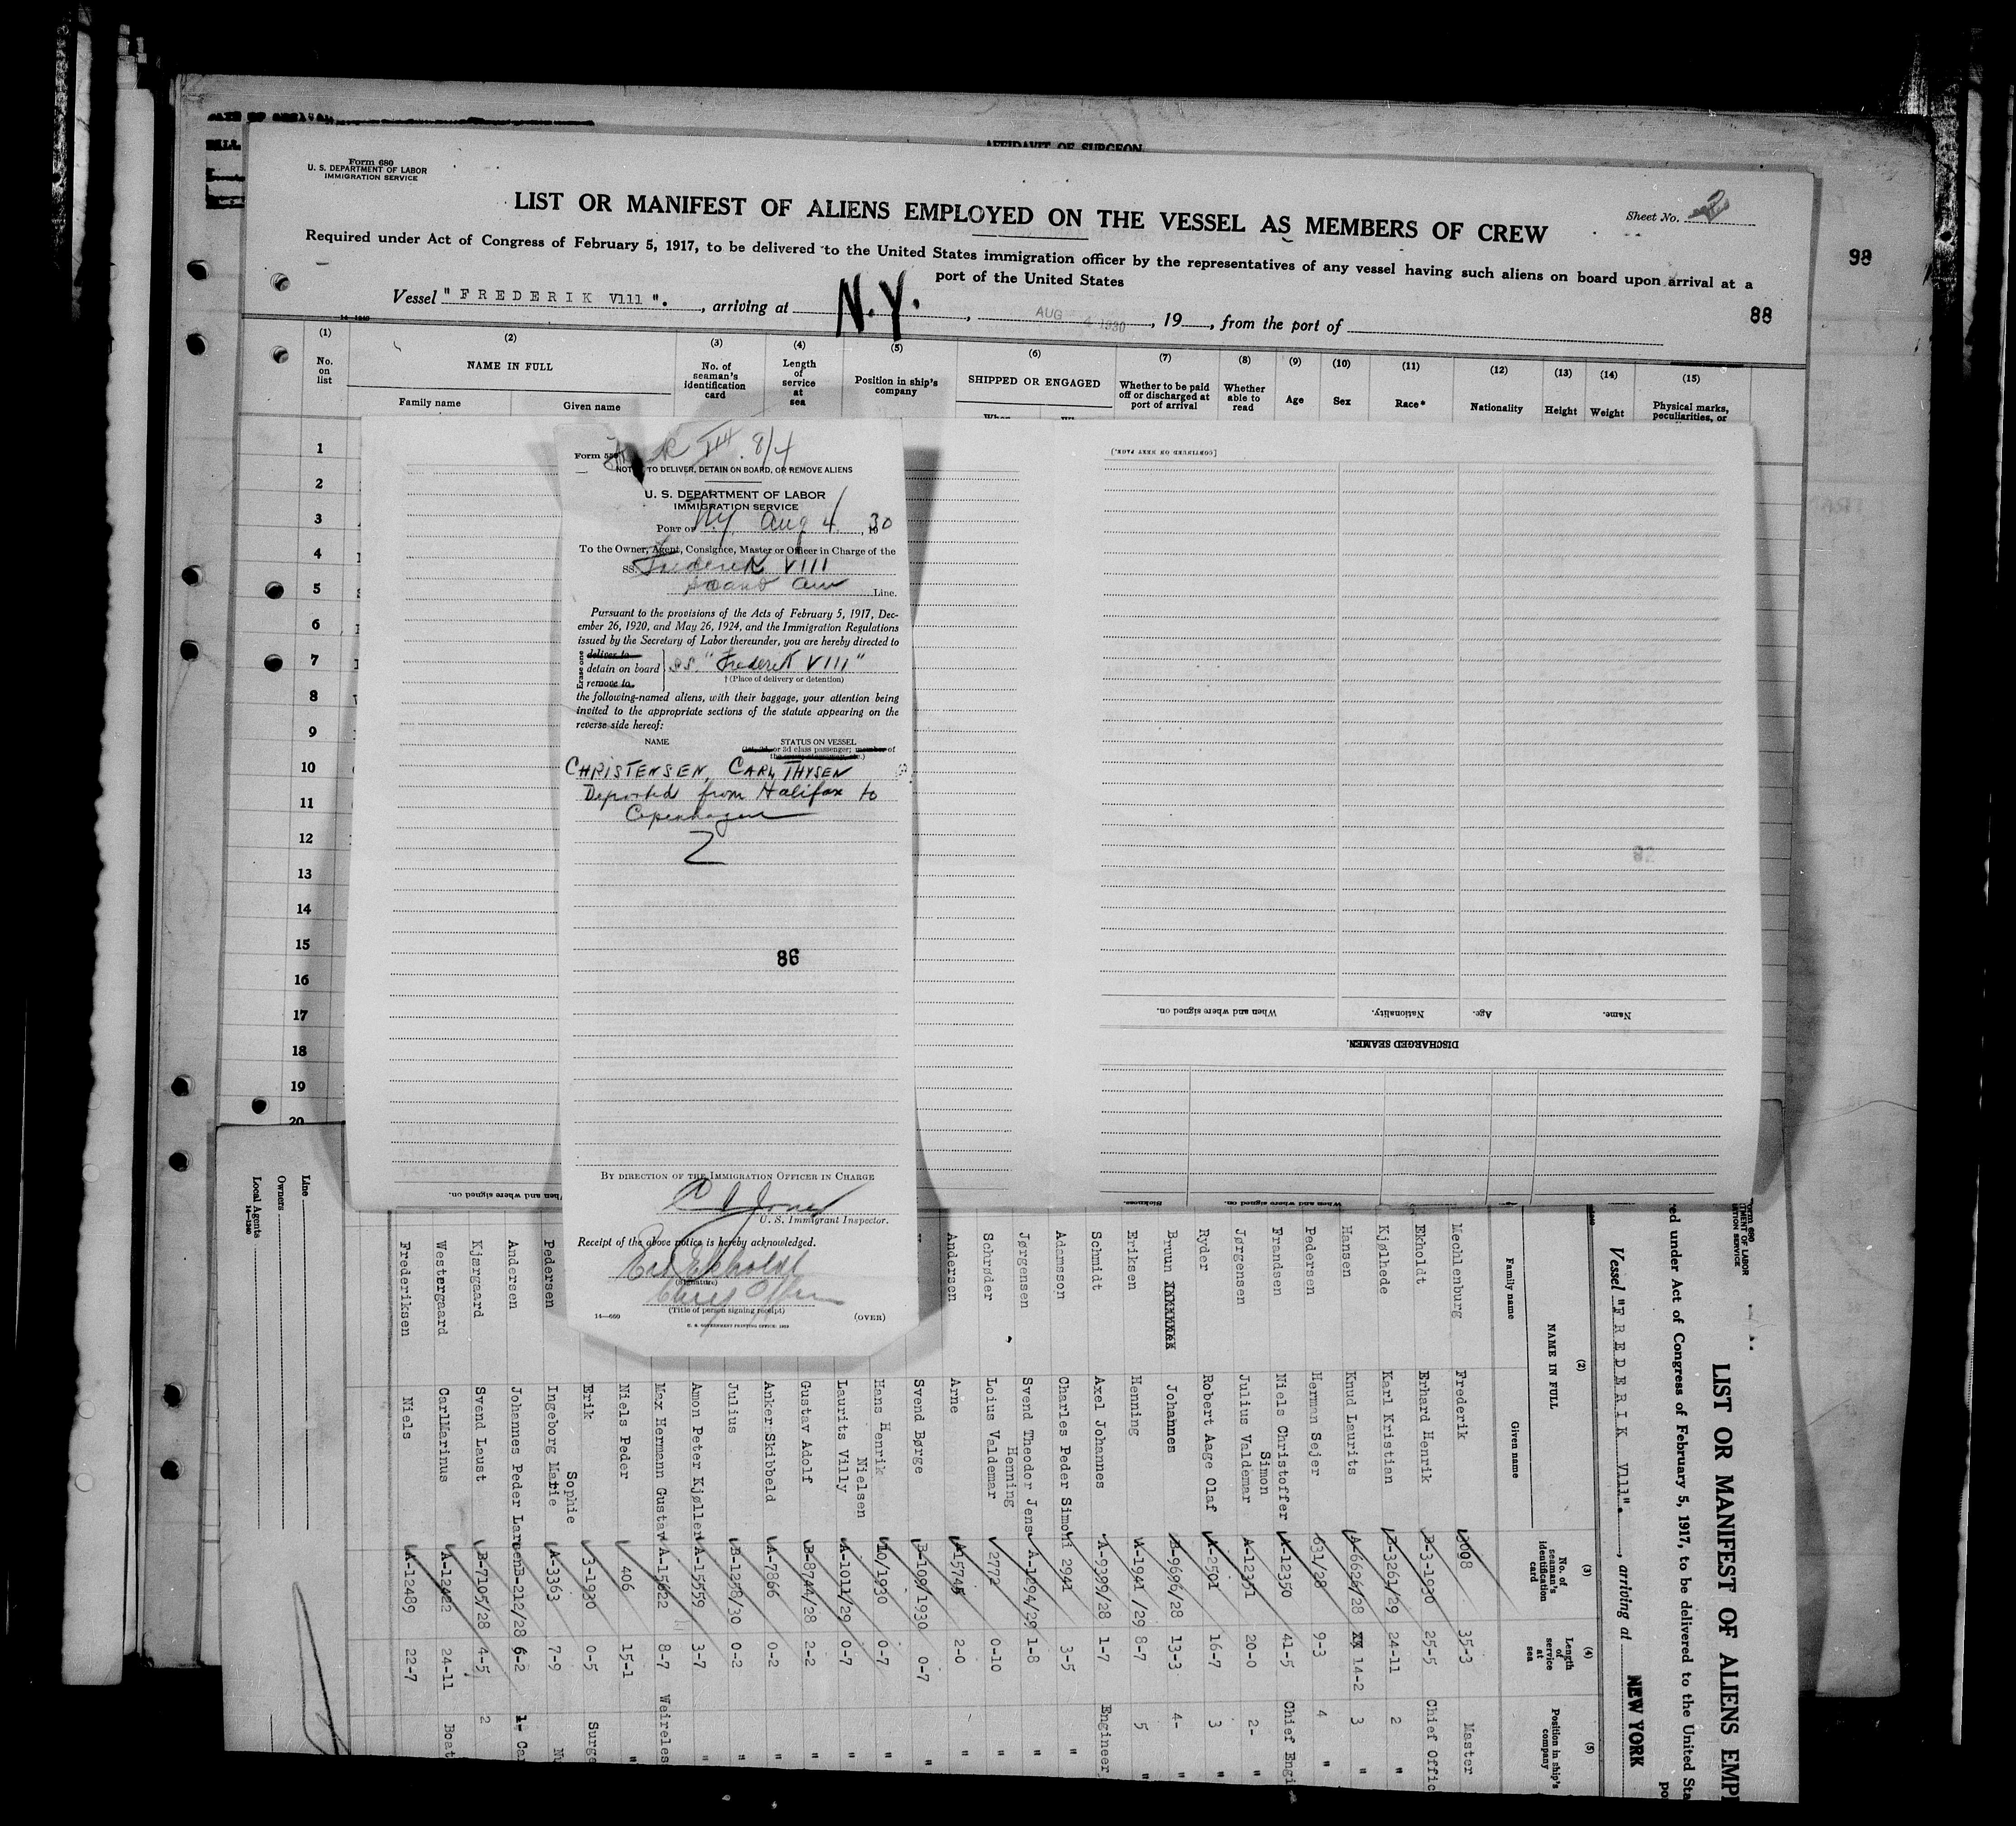 DATE OF ARRIVAL
AFFIDAVIT OF SURGEON
Form 680
U. S. DEPARTMENT OF LABOR
IMMIGRATION SERVICE
Sheet No.
LIST OR MANIFEST OF ALIENS EMPLOYED ON THE VESSEL AS MEMBERS OF CREW
Required under Act of Congress of February 5, 1917, to be delivered to the United States immigration officer by the representatives of any vessel having such aliens on board upon arrival at a
port of the United States
98
88
Vessel "FREDERIK V111"., arriving at N.Y., AUG 4 1930, 19, from the port of
14-1240
(1) (2) (3) (4) (5) (6) (7) (8) (9) (10) (11) (12) (13) (14) (15)
No. on list
NAME IN FULL
Family name
Given name
No. of seaman's identification card
Length of service at sea
Position in ship's company
SHIPPED OR ENGAGED
Whether to be paid off or discharged at port of arrival
Whether able to read
Age
Sex
Race*
Nationality
Height
Weight
Physical marks, peculiarities, or
1
2
3
4
5
6
7
8
9
10
11
12
13
14
15
16
17
18
19
20
VIII 8/4
NOTICE TO DELIVER, DETAIN ON BOARD, OR REMOVE ALIENS
U. S. DEPARTMENT OF LABOR
IMMIGRATION SERVICE
PORT OF N.Y. Aug 4, 1930
To the Owner, Agent, Consignee, Master or Officer in Charge of the
SS. Frederik VIII
Scand Am Line.
Pursuant to the provisions of the Acts of February 5, 1917, Dec-
ember 26, 1920, and May 26, 1924, and the Immigration Regulations
issued by the Secretary of Labor thereunder, you are hereby directed to
Erase one
deliver to
detain on board
remove to
SS. "Frederik VIII"
† (Place of delivery or detention)
the following-named aliens, with their baggage, your attention being
invited to the appropriate sections of the statute appearing on the
reverse side hereof:
NAME
STATUS ON VESSEL
(1st, 2d, or 3d class passenger; member of
CHRISTENSEN, CARL THYSEN
Deported from Halifax to
Copenhagen
86
BY DIRECTION OF THE IMMIGRATION OFFICER IN CHARGE
U. S. Immigrant Inspector.
Receipt of the above notice is hereby acknowledged.
(Signature)
Chief Officer
(Title of person signing receipt)
14-660
(OVER)
U. S. GOVERNMENT PRINTING OFFICE
[CONTINUED ON NEXT PAGE.]
Name.
Age.
Nationality.
When and where signed on.
DISCHARGED SEAMEN.
When and where signed on.
Sickness.
When and where signed on.
LIST OR MANIFEST OF ALIENS EMP
ed under Act of Congress of February 5, 1917, to be delivered to the United Sta
po
Vessel "FREDERIK V111"., arriving at NEW YORK
(2) (3) (4) (5)
NAME IN FULL
Family name
Given name
No. of seaman's identification card
Length of service at sea
Position in ship's company
Mechlenburg Frederik 2098 35-3 Master
Ekholdt Erhard Henrik B-3-1930 25-5 Chief Offic
Kjølhede Karl Kristian B-3261/29 24-11 2 "
Hansen Knud Laurits A-6626/28 XX 14-2 3 "
Pedersen Herman Sejer 631/28 9-3 4 "
Frandsen Niels Christoffer Simon A-12350 41-5 Chief Engi
Jørgensen Julius Valdemar A-12351 20-0 2- "
Ryder Robert Aage Olaf A-2501 16-7 3 "
Bruun XXXXXXXX Johannes B-9696/28 13-3 4- "
Eriksen Henning A-1941/29 8-7 5 "
Schmidt Axel Johannes A-9399/28 1-7 Engineer
Adamsson Charles Peder Simoni 2941 3-5 "
Jørgensen Svend Theodor Jens Henning A-1294/29 1-8 "
Schrøder Loius Valdemar 2772 0-10 "
Andersen Arne A15745 2-0 "
Svend Børge B-109/1930 0-7 "
Hans Henrik Nielsen 10/1930 0-7 "
Laurits Villy A-1011/29 0-7 "
Gustav Adolf B-8744/28 2-2 "
Anker Skibbeld A-7866 0-2 "
Julius B-1258/30 0-2 "
Amon Peter Kjøller A-15559 3-7 "
Max Hermann Gustav A-15622 8-7 Weireles
Niels Peder 406 15-1 "
Erik 3-1930 0-5 Surge
Pedersen Ingeborg Marie Sophie A-3363 7-9 Nu
Andersen Johannes Peder Larsen B-212/28 6-2 1- Car
Kjærgaard Svend Laust B-7105/28 4-5 2
Westergaard CarlMarinus A-12422 24-11 Boat
Frederiksen Niels A-12489 22-7
Line
Owners
Local Agents
14-1240